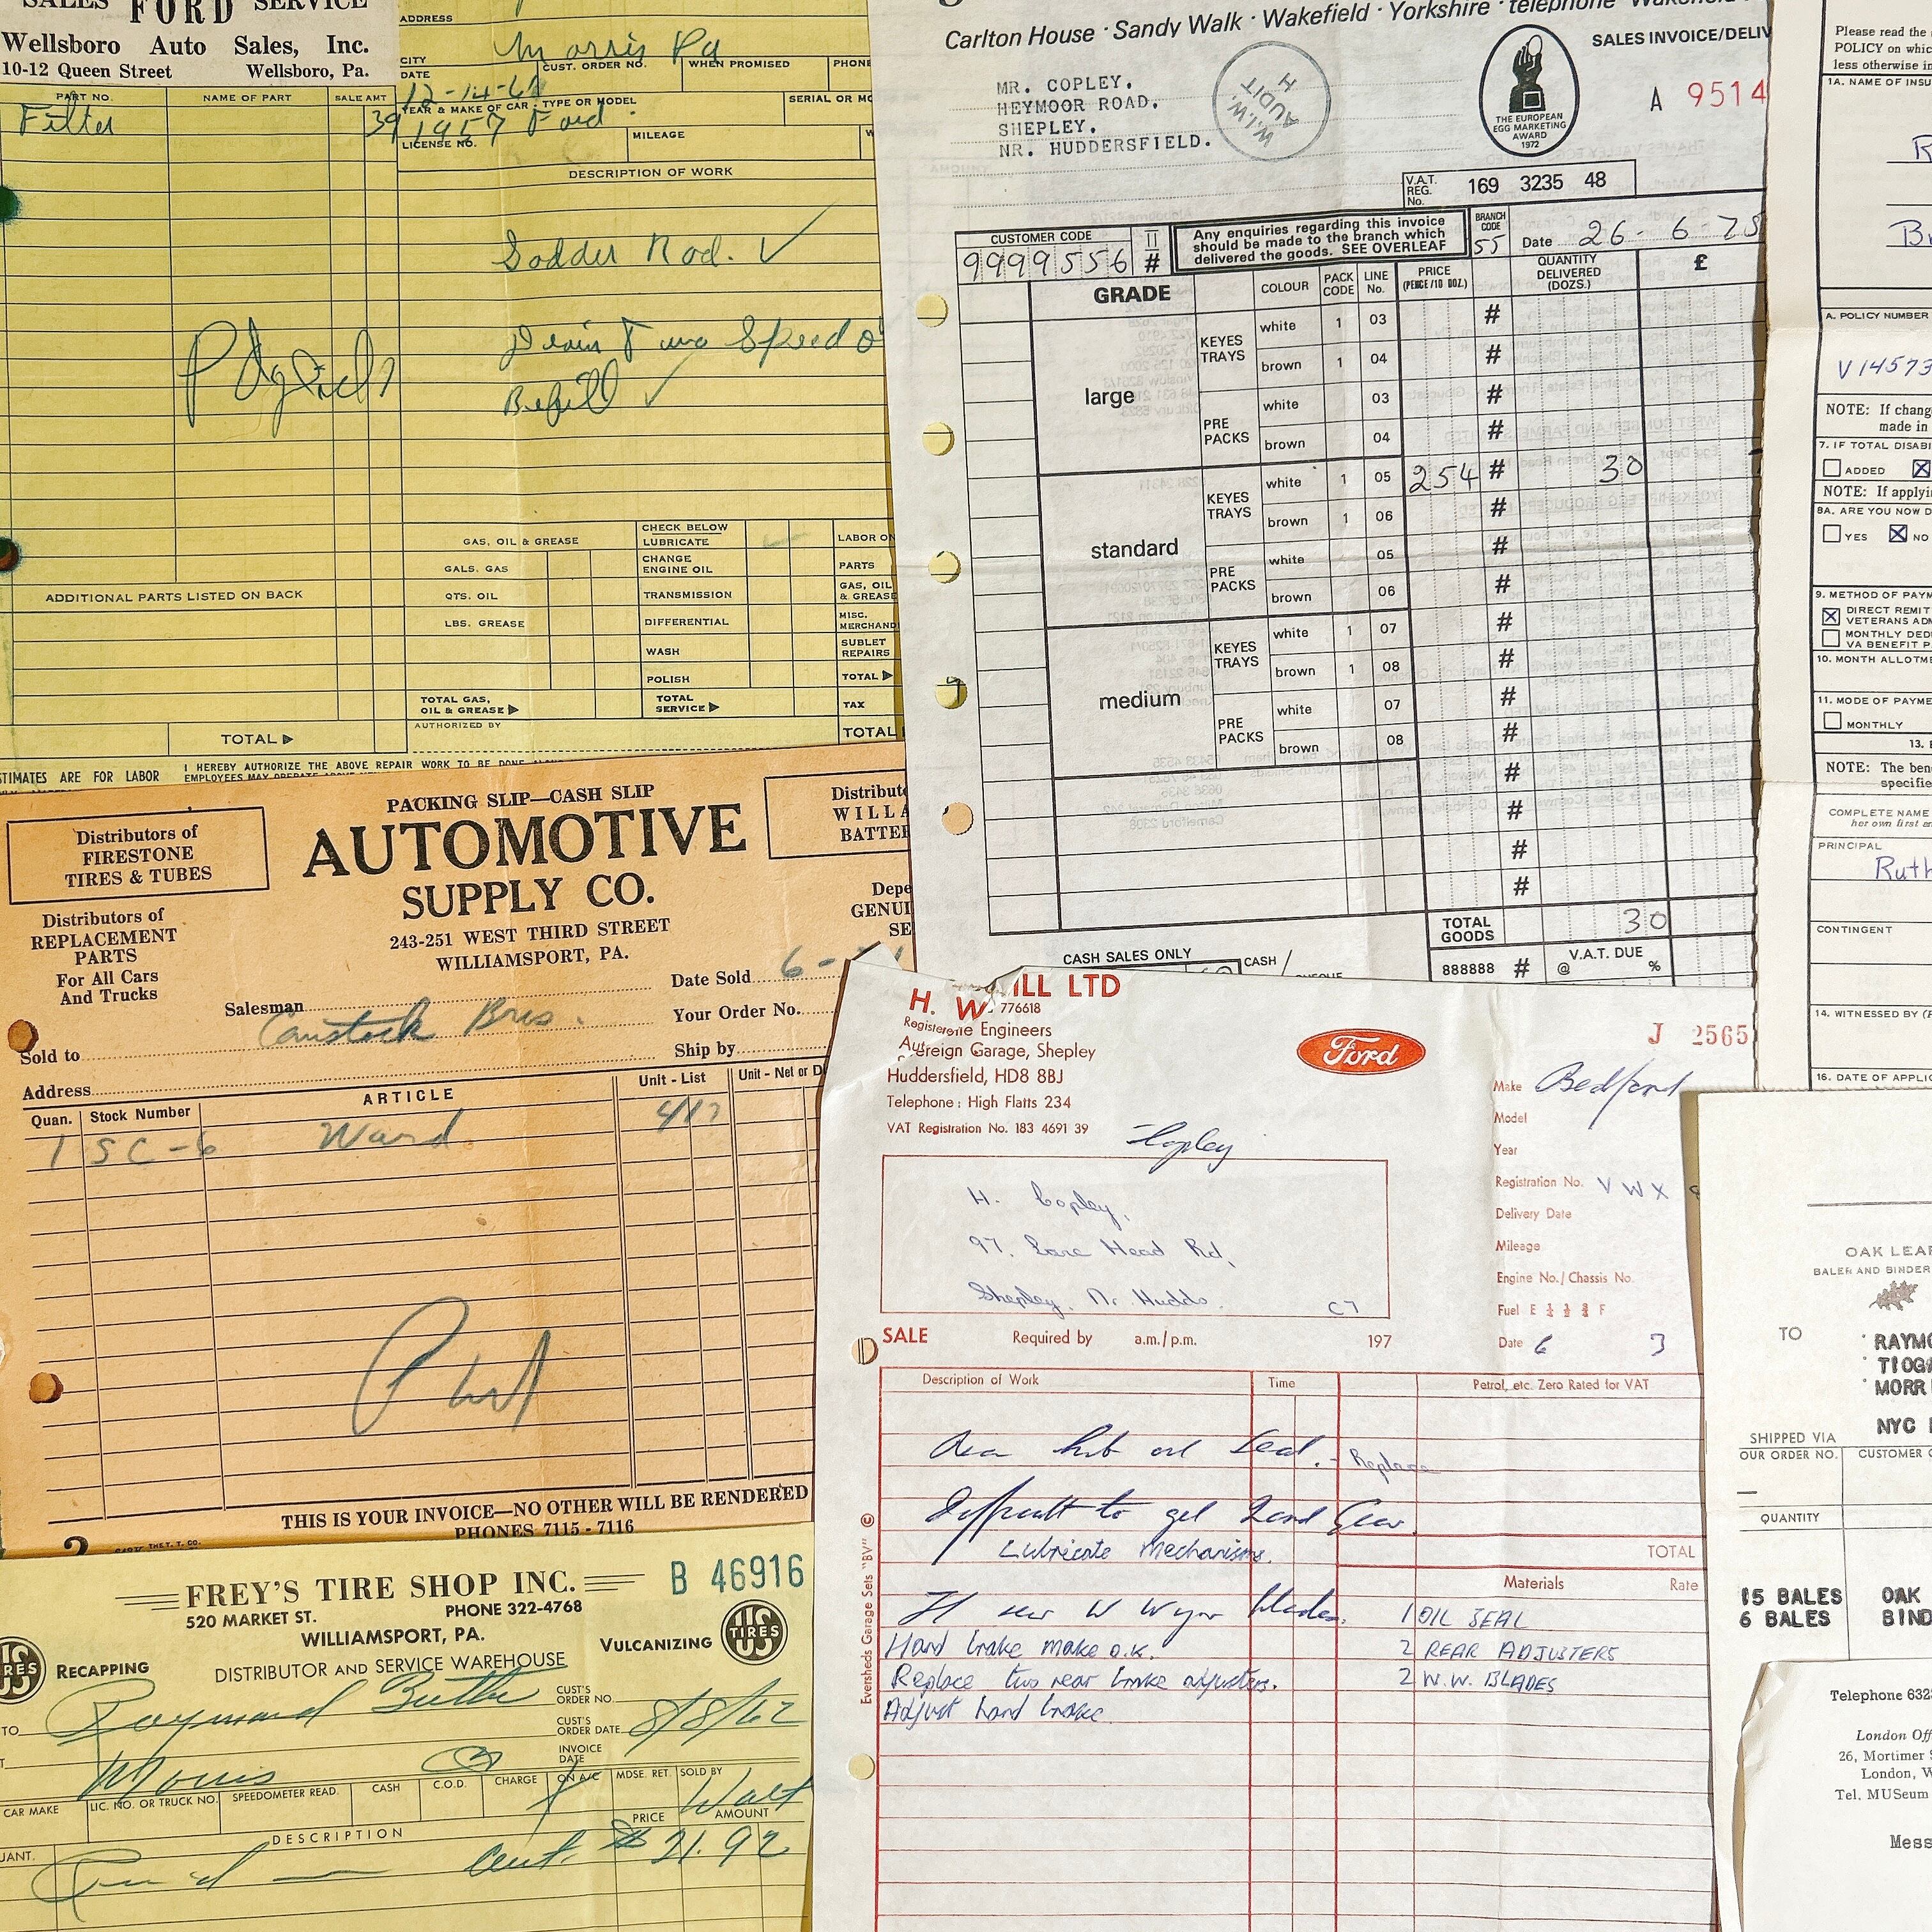 SALES FORD SERVICE
Wellsboro Auto Sales, Inc.
10-12 Queen Street Wellsboro, Pa.
PART NO. NAME OF PART SALE AMT
Filter 39
ADDITIONAL PARTS LISTED ON BACK
TOTAL
ADDRESS
CITY Morris Pa
DATE CUST. ORDER NO. WHEN PROMISED PHONE
12-14-61
YEAR & MAKE OF CAR - TYPE OR MODEL SERIAL OR MO
1957 Ford
LICENSE NO. MILEAGE
DESCRIPTION OF WORK
Sodder Rad. ✓
Drain Two Speed
Refill ✓
GAS, OIL & GREASE
GALS. GAS
QTS. OIL
LBS. GREASE
TOTAL GAS,
OIL & GREASE
CHECK BELOW
LUBRICATE ✓
CHANGE
ENGINE OIL
TRANSMISSION
DIFFERENTIAL
WASH
POLISH
TOTAL
SERVICE
LABOR ON
PARTS
GAS, OIL
& GREASE
MISC.
MERCHAND
SUBLET
REPAIRS
TOTAL
TAX
TOTAL
AUTHORIZED BY
STIMATES ARE FOR LABOR
I HEREBY AUTHORIZE THE ABOVE REPAIR WORK TO BE DONE
EMPLOYEES MAY OPERATE
PACKING SLIP—CASH SLIP
AUTOMOTIVE
SUPPLY CO.
243-251 WEST THIRD STREET
WILLIAMSPORT, PA.
Distributors of
FIRESTONE
TIRES & TUBES
Distributors of
REPLACEMENT
PARTS
For All Cars
And Trucks
Distributo
WILLA
BATTER
Depe
GENUI
SE
Salesman
Date Sold 6-
Sold to Comstock Bros.
Your Order No.
Ship by
Address
Quan. Stock Number ARTICLE Unit - List Unit - Net or D
1 SC-6 Ward
THIS IS YOUR INVOICE—NO OTHER WILL BE RENDERED
PHONES 7115 - 7116
FREY'S TIRE SHOP INC. B 46916
520 MARKET ST. PHONE 322-4768
WILLIAMSPORT, PA.
RECAPPING VULCANIZING
US TIRES
DISTRIBUTOR AND SERVICE WAREHOUSE
TO Raymond Butler
CUST'S
ORDER NO.
CUST'S
ORDER DATE 8/8/62
INVOICE
DATE
Morris
CAR MAKE LIC. NO. OR TRUCK NO. SPEEDOMETER READ. CASH C.O.D. CHARGE ON A/C MDSE. RET. SOLD BY
Walt
DESCRIPTION PRICE AMOUNT
UANT.
$21.92
Carlton House · Sandy Walk · Wakefield · Yorkshire · telephone Wakefield
MR. COPLEY,
HEYMOOR ROAD,
SHEPLEY,
NR. HUDDERSFIELD.
W.I.W.
AUDIT
H
THE EUROPEAN
EGG MARKETING
AWARD
1972
SALES INVOICE/DELIV
A 9514
V.A.T.
REG.
No. 169 3235 48
CUSTOMER CODE
9999556 #
Any enquiries regarding this invoice
should be made to the branch which
delivered the goods. SEE OVERLEAF
BRANCH
CODE
55
Date 26-6-75
GRADE COLOUR PACK CODE LINE No. PRICE (PENCE/10 DOZ.) QUANTITY DELIVERED (DOZS.) £
large KEYES TRAYS white 1 03 #
brown 1 04 #
PRE PACKS white 03 #
brown 04 #
standard KEYES TRAYS white 1 05 254 # 30
brown 1 06 #
PRE PACKS white 05 #
brown 06 #
medium KEYES TRAYS white 1 07 #
brown 1 08 #
PRE PACKS white 07 #
brown 08 #
#
#
#
#
TOTAL
GOODS 30
CASH SALES ONLY CASH/
888888 # V.A.T. DUE
@ %
H. W ILL LTD
776618
Engineers
reign Garage, Shepley
Huddersfield, HD8 8BJ
Telephone: High Flatts 234
VAT Registration No. 183 4691 39
Ford
J 2565
Copley
H. Copley,
97, Lane Head Rd,
Shepley, Nr Hudds. C7
Make Bedford
Model
Year
Registration No. VWX
Delivery Date
Mileage
Engine No./Chassis No.
Fuel E ¼ ½ ¾ F
Date 6 3
SALE Required by a.m./p.m. 197
Description of Work Time Petrol, etc. Zero Rated for VAT
Rear hub oil seal. - Replace
Difficult to get 2nd Gear.
Lubricate Mechanisms.
TOTAL
Materials Rate
new W Wiper blades. 1 OIL SEAL
Hand brake make o.k. 2 REAR ADJUSTERS
Replace two rear brake adjusters. 2 W.W. BLADES
Adjust hand brake.
Eversheds Garage Sets "BV" ©
Please read the
POLICY on which
less otherwise in
1A. NAME OF INSU
A. POLICY NUMBER
V14573
NOTE: If chang
made in
7. IF TOTAL DISABI
ADDED
NOTE: If applyin
8A. ARE YOU NOW D
YES NO
9. METHOD OF PAYM
DIRECT REMIT
VETERANS ADM
MONTHLY DED
VA BENEFIT P
10. MONTH ALLOTM
11. MODE OF PAYME
MONTHLY
13.
NOTE: The bene
specifie
COMPLETE NAME
her own first an
PRINCIPAL
Ruth
CONTINGENT
14. WITNESSED BY
16. DATE OF APPLIC
OAK LEAF
BALER AND BINDER
TO RAYMO
TIOGA
MORR
NYC
SHIPPED VIA
OUR ORDER NO. CUSTOMER O
QUANTITY
15 BALES OAK
6 BALES BIND
Telephone 632
London Off
26, Mortimer S
London, W
Tel. MUSeum
Mess